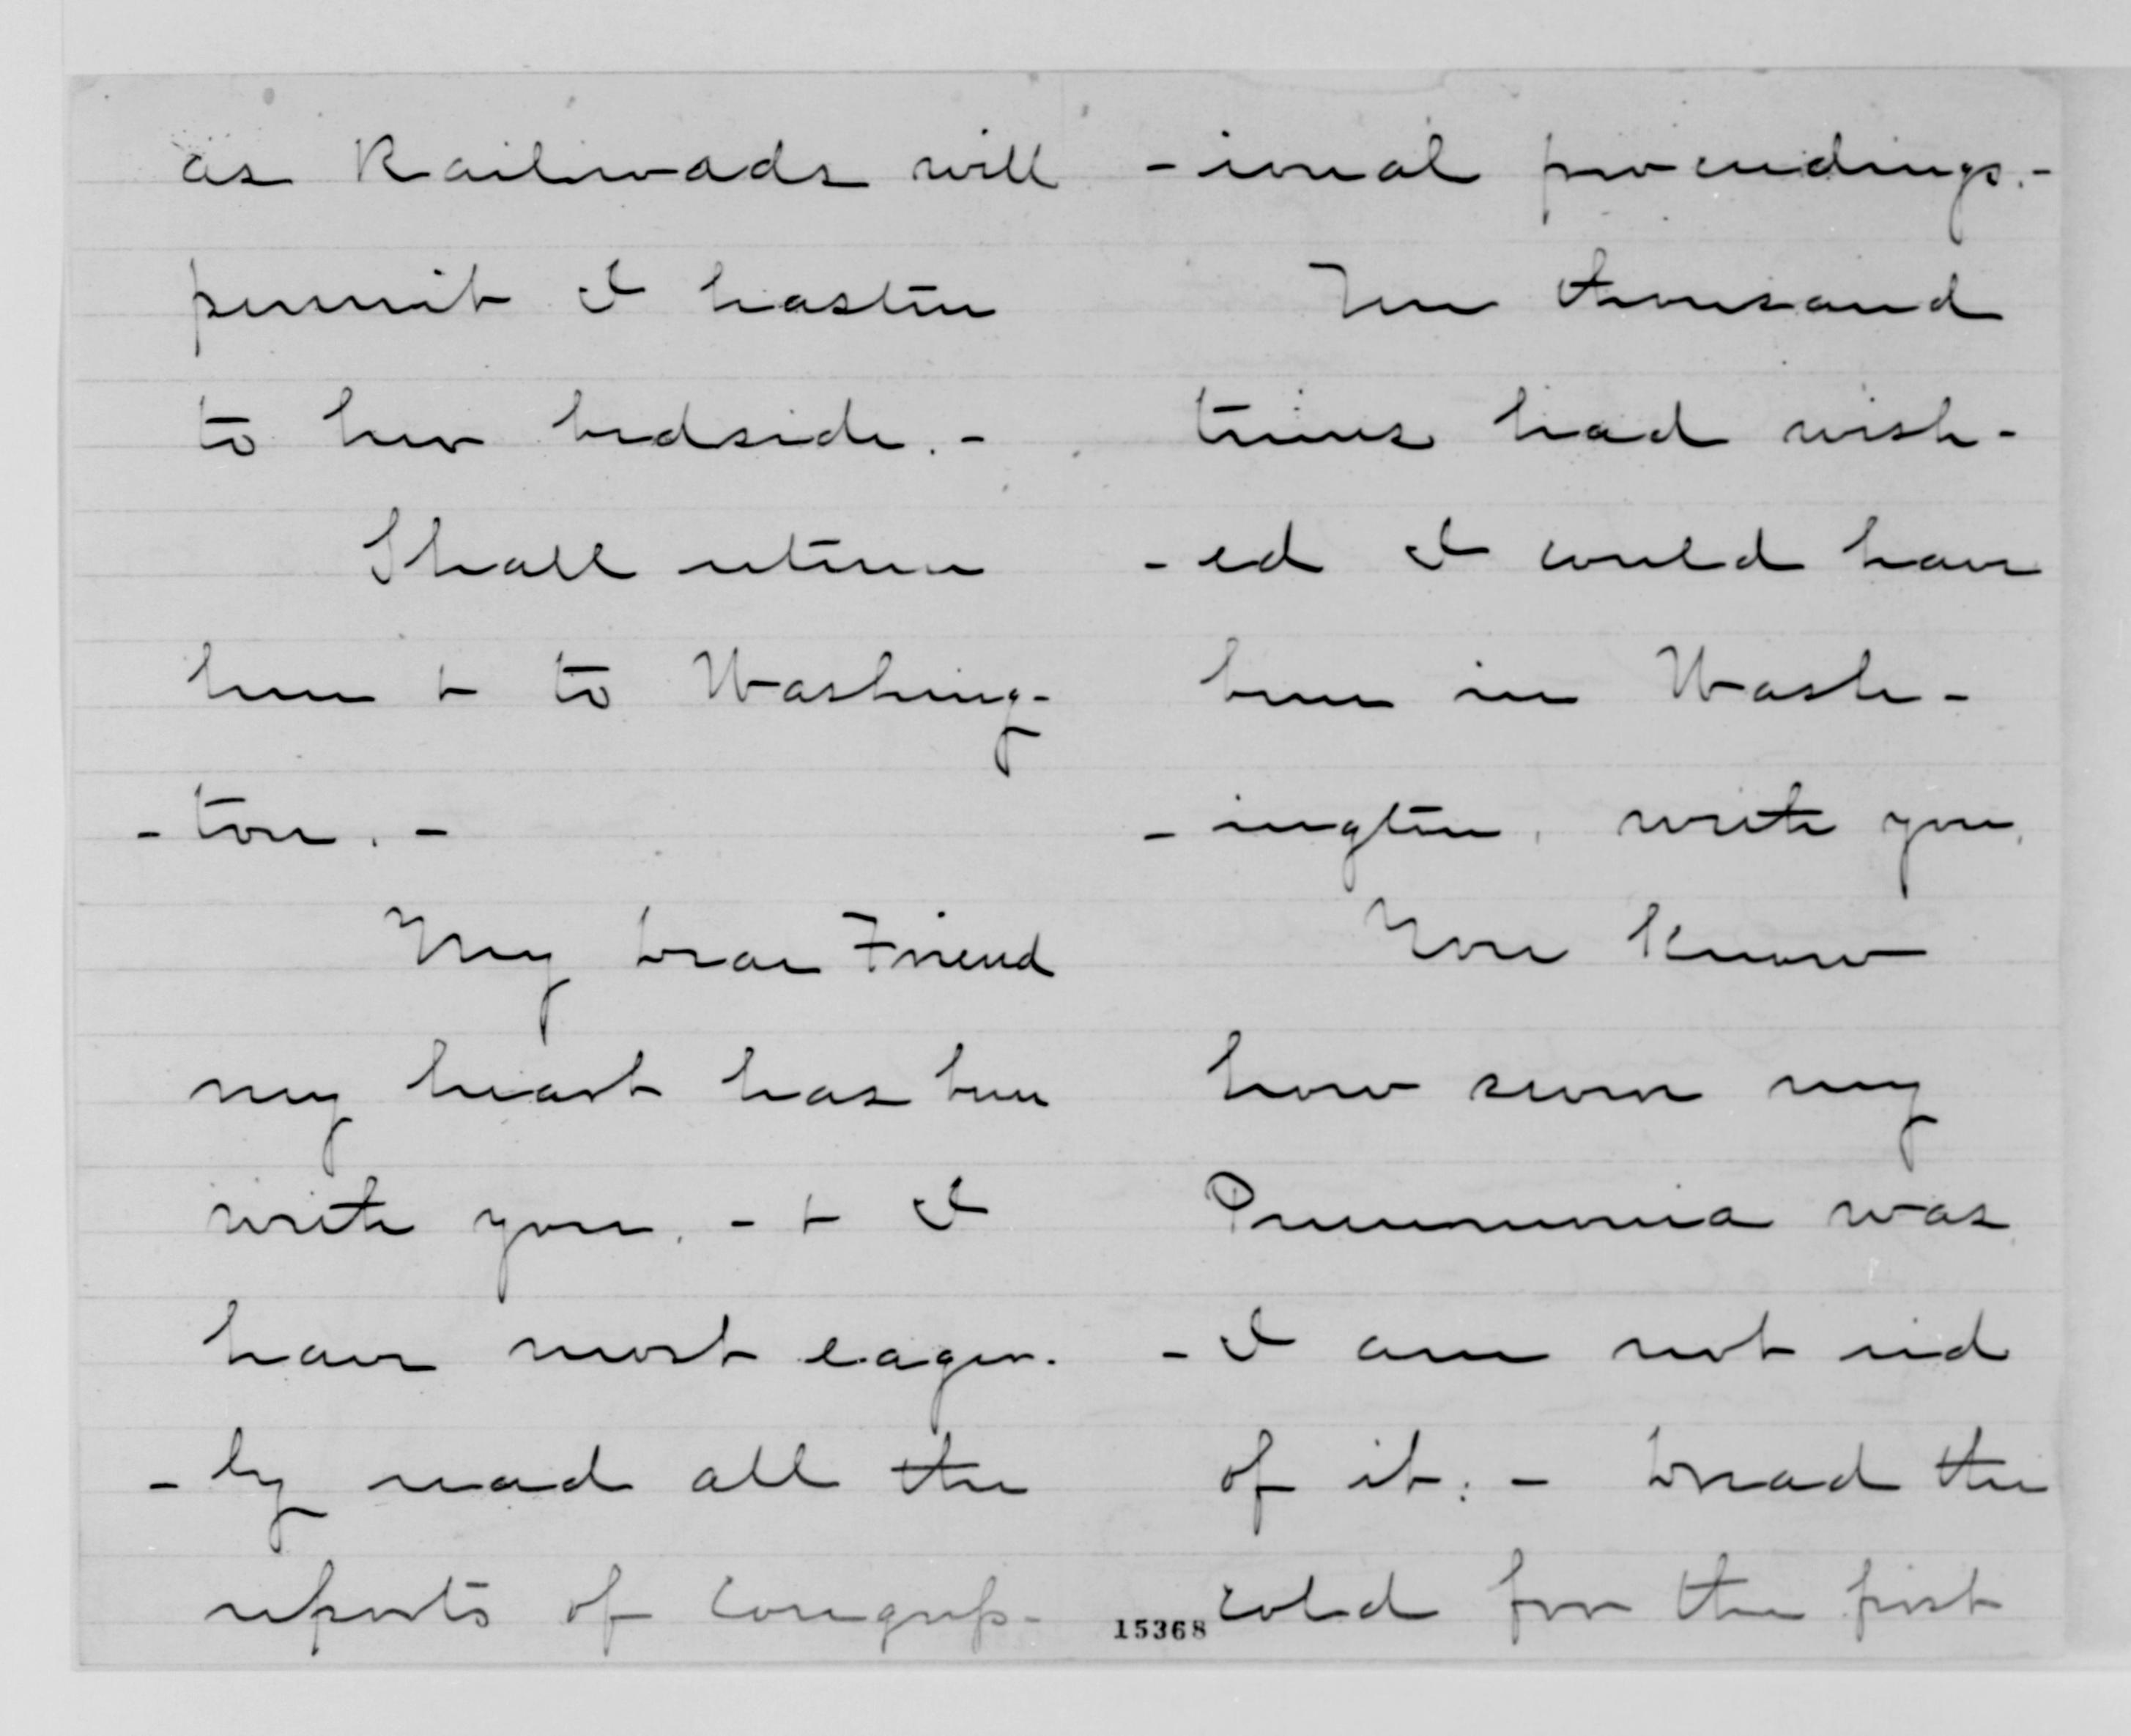 as Railroads will
permit I hasten
to her bedside. -
Shall return
here & to Washing-
-ton. -
My dear Friend
my heart has been
write you. - & I
have most eager-
-ly read all the
reports of Congress-
-ional proceedings. -
Ten thousand
times had wish-
-ed I could have
been in Wash-
-ington, write you,
You know
how severe my
Pneumonia was
- I am not rid
of it: - dread the
cold for the first
15368